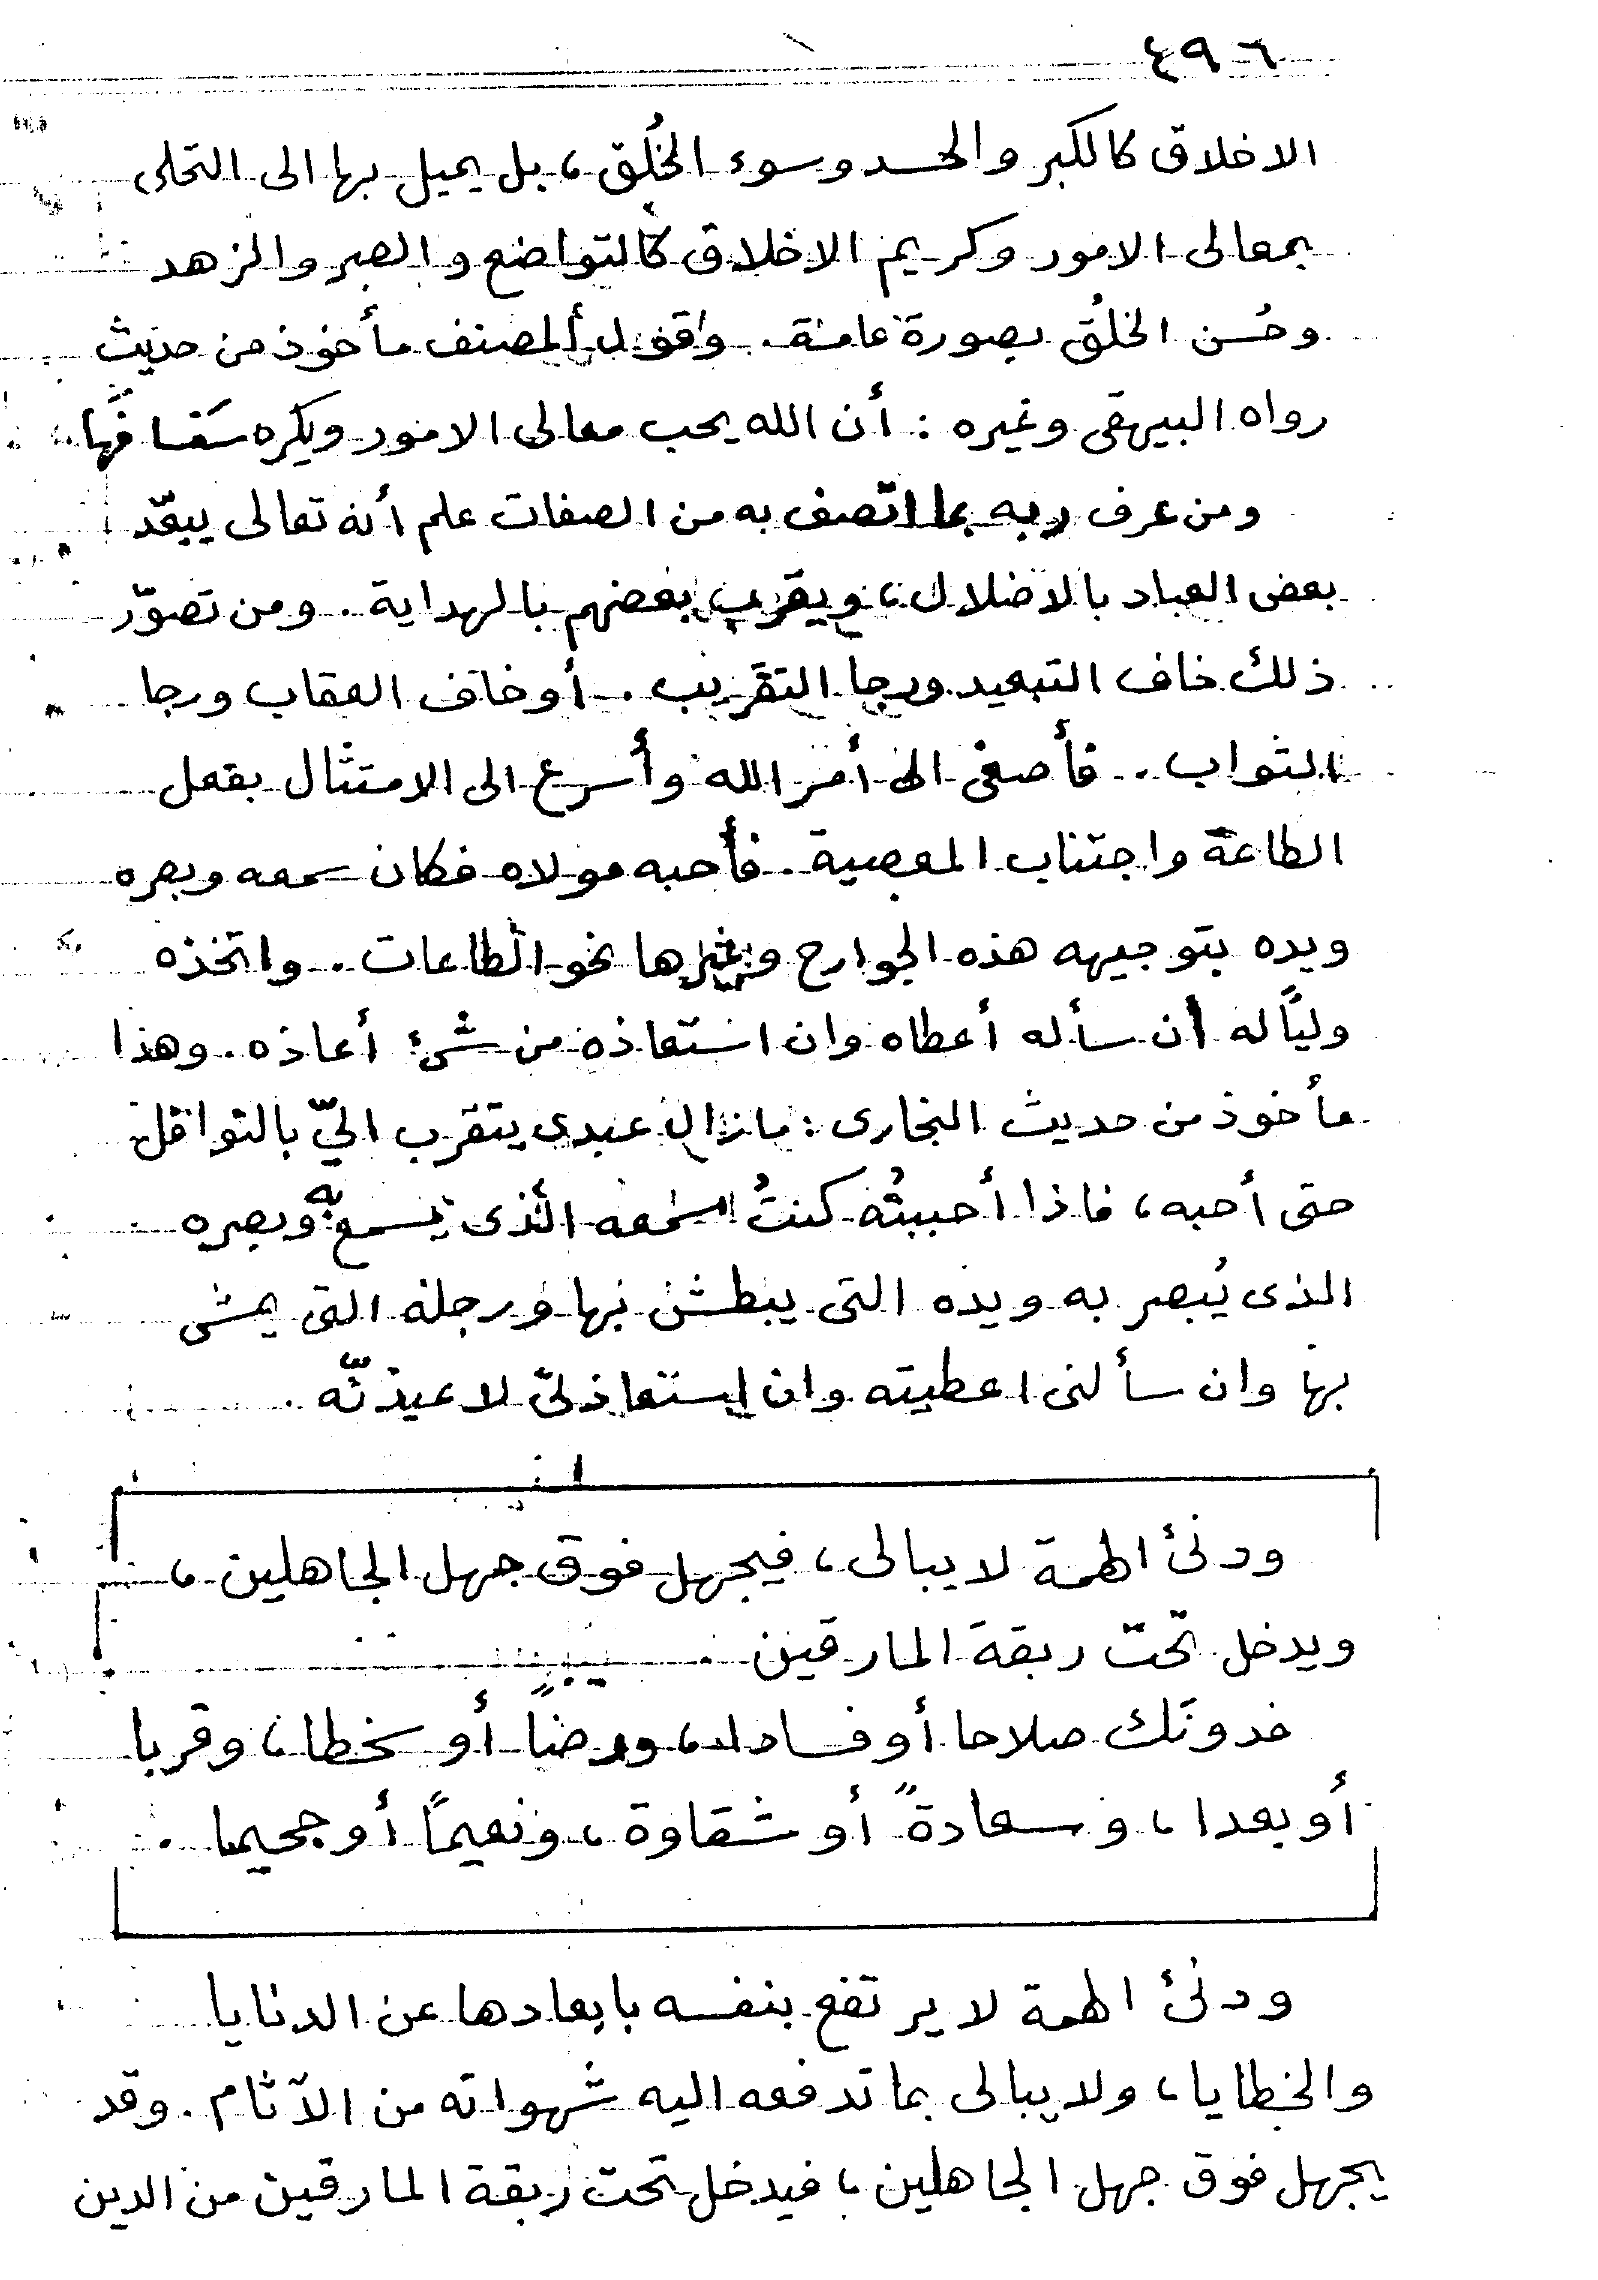 ٤٩٦
الاخلاق كالكبر والحسد وسوء الخُلُق، بل يميل بها الى التحلى
بمعالى الامور وكريم الاخلاق كالتواضع والصبر والزهد
وحُسن الخلُق بصورة عامة. وقول المصنف مأخوذ من حديث
رواه البيهقى وغيره : أن الله يحب معالى الامور ويكره سَفسافَها
ومن عرف ربه بما اتصف به من الصفات علم أنه تعالى يبعّد
بعض العباد بالاضلال، ويقرب بعضهم بالهداية. ومن تصوّر
ذلك خاف التبعيد ورجا التقريب. أو خاف العقاب ورجا
الثواب. فأصغى الى أمر الله وأسرع الى الامتثال بفعل
الطاعة واجتناب المعصية. فأحبه مولاه فكان سمعه وبصره
ويده بتوجيهه هذه الجوارح وغيرها نحو الطاعات. واتخذه
وليًّا له أن سأله أعطاه وان استعاذه من شىء أعاذه. وهذا
مأخوذ من حديث البخارى : مازال عبدى يتقرب اليّ بالنوافل
حتى أحبه، فاذا أحببتُه كنتُ سمعه الذى يسمع به وبصره
الذى يُبصر به ويده التى يبطش بها ورجله التى يمشى
بها وان سألنى اعطيته وان استعاذنى لاعيذنّه .
ودنئ الهمة لا يبالى، فيجهل فوق جهل الجاهلين،
ويدخل تحت ربقة المارقين .
فدونَك صلاحا أو فسادا، ورضًا أو سخطا، وقربا
أو بعدا، وسعادةً أو شقاوة، ونعيمًا أو جحيما .
ودنئ الهمة لا يرتفع بنفسه بابعادها عن الدنايا
والخطايا، ولا يبالى بما تدفعه اليه شهواته من الآثام. وقد
يجهل فوق جهل الجاهلين، فيدخل تحت ربقة المارقين من الدين